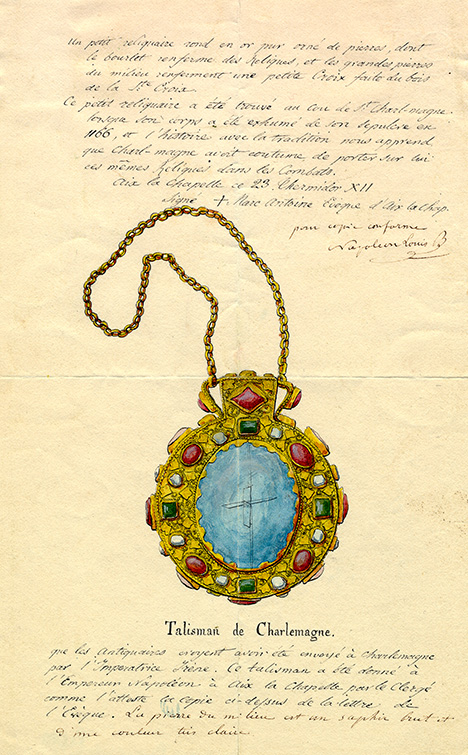 Un petit reliquaire rond en or pur orné de pierres, dont
le bourlet renferme des Reliques, et les grandes pierres
du milieu renferment une petite Croix faite du bois
de la Ste Croix
Ce petit reliquaire a été trouvé au cou de St Charl-magne
lorsque son corps a été exhumé de son sépulcre en
1166, et l'histoire avec la tradition nous apprend
que Charl-magne avoit coutume de porter sur lui
ces mêmes Reliques dans les Combats.
Aix la Chapelle ce 23 Thermidor XII
Signé + Marc Antoine Evêque d'Aix la Chap.
pour copie conforme
Napoléon Louis B
Talismañ de Charlemagne.
que les Antiquaires croyent avoir été envoyé à Charlemagne
par l'Impératrice Irène. Ce talisman a été donné à
l'Empereur Napoléon à Aix la Chapelle par le Clergé
comme l'atteste la copie ci-dessus de la lettre de
l'Evêque. La pierre du milieu est un saphir brut +
d'une couleur très claire